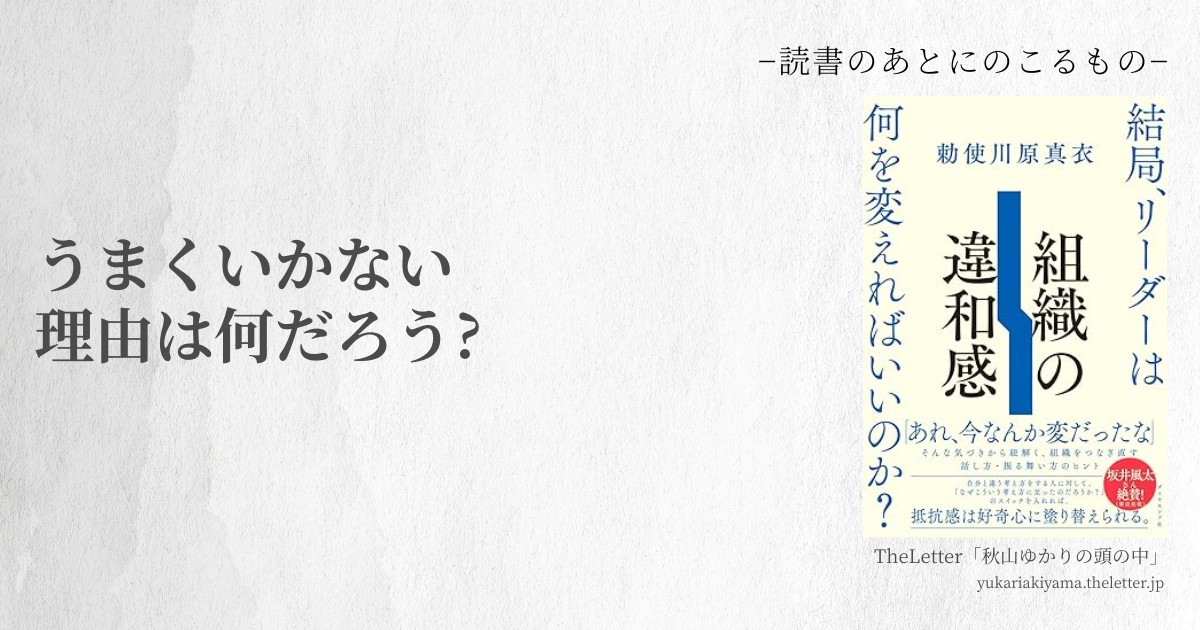 −読書のあとにのこるもの−
うまくいかない
理由は何だろう?
結局、リーダーは
何を変えればいいのか?
勅使川原真衣
組織の
違和感
「あれ、今なんか変だったな」
そんな気づきから紐解く、組織をつなぎ直す
話し方・振る舞い方のヒント
自分と違う考え方をする人に対して、
「なぜこういう考え方に至ったのだろうか?」
のスイッチを入れれば、
抵抗感は好奇心に塗り替えられる。
坂井風太
さん
絶賛!
ダイヤモンド社
TheLetter「秋山ゆかりの頭の中」
yukariakiyama.theletter.jp